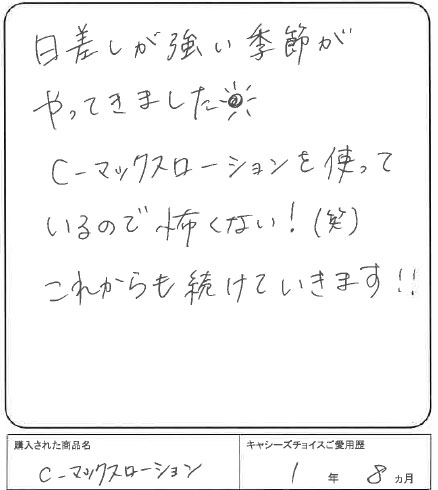 日差しが強い季節が
やってきました☀
C-マックスローションを使って
いるので怖くない！(笑)
これからも続けていきます!!
購入された商品名
C-マックスローション
キャシーズチョイスご愛用歴
1年8ヵ月